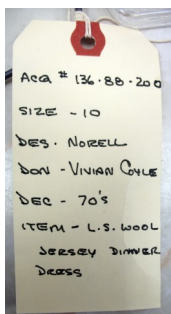 ACQ # 136.88.200
SIZE - 10
DES. NORELL
DON - VIVIAN COYLE
DEC - 70's
ITEM - L.S. WOOL
JERSEY DINNER
DRESS